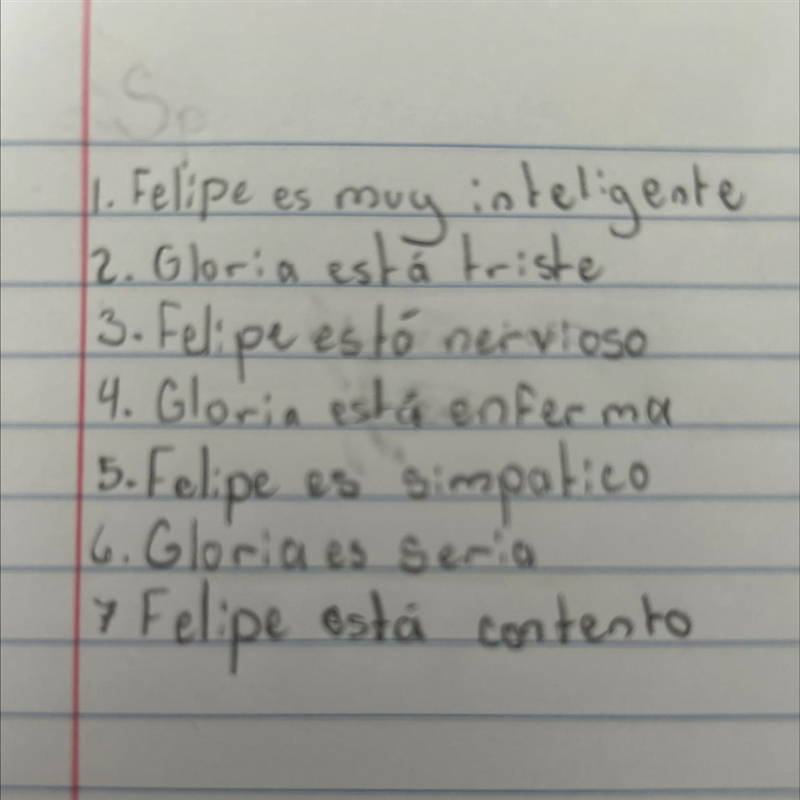 Sp
1. Felipe es muy inteligente
2. Gloria está triste
3. Felipe está nervioso
4. Gloria está enferma
5. Felipe es simpatico
6. Gloria es seria
7 Felipe está contento